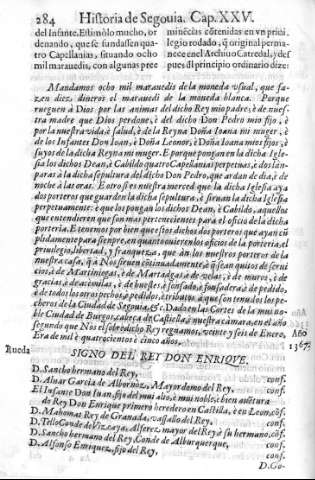 284 Historia de Segouia. Cap. XXV.
del Infante. Estimòlo mucho, or
denando, que se fundassen qua
tro Capellanias, situando ocho
mil marauedis, con algunas pree
minècias cõtenidas en vn priui
legio rodado, q̃ original perma-
nece en el Archiuo Catredal, y des
pues dl principio ordinario dize:
Mandamos ocho mil marauedis de la moneda vsual, que fa-
zen diez dineros el marauedi de la moneda blanca. Porque
rueguen à Dios por las animas del dicho Rey mio padre, è de nues-
tra madre que Dios perdone, è del dicho Don Pedro mio fijo, è
por la nuestra vida, è salud, è de la Reyna Doña Ioana mi muger, è
de los Infantes Don Ioan, è Doña Leonor, è Doña Ioana mios fijos, è
suyos de la dicha Reyna mi muger. E porque pongan en la dicha Igle-
sia los dichos Dean, è Cabildo quatro Capellanias perpetuas, è dos len-
paras à la dicha sepultura del dicho Don Pedro, que ardan de dia, è de
noche à las oras. E otro si es nuestra merced que la dicha Iglesia aya
dos porteros que guarden la dicha sepultura, è siruan la dicha Iglesia
perpetuamente: è que los pongan los dichos Dean, è Cabildo, aquellos
que entendieren que son mas pertenecientes para el oficio de la dicha
porteria. E tenemos por bien que estos dichos dos porteros que ayan cũ
plidamente para siempre, en quanto siruieren los oficios de la porteria, el
priuilegio, libertad, y franqueza, que àn los nuestros porteros de la
nuestra casa, q̃ à Nos siruen cõtinuadamente, è q̃ sean quitos de serui
cios, è de Martiniegas, è de Martadgas, è de velas, è de muros, è de
gracias, è de açemilas, è de huestes, è fonsado, è fonsadera, è de pedido,
è de todos los otros pechos, è pedidos, è tributos à que son tenudos los pe-
cheros de la Ciudad de Segouia, &c. Dado en las Cortes de la mui no-
ble Ciudad de Burgos, cabeça de Castilla, è nuestra camara, en el año
segundo que Nos el sobredicho Rey regnamos, veinte y seis de Enero,
Era de mil è quatrocientos è cinco años.
Año
1367.
Rueda
SIGNO DEL REY DON ENRIQVE.
D. Sancho hermano del Rey, conf.
D. Aluar Garcia de Albornòz, Mayordomo del Rey, conf.
El Infante Don Iuan, fijo del mui alto, è mui noble, è bien auẽtura
do Rey Don Enrique primero heredero en Castilla, è en Leon, cõf.
D. Mahomat Rey de Granada, vasallo del Rey, conf.
D. Tello Conde de Vizcaya, Alferez mayor del Rey è su hermano, cõf.
D. Sancho hermano del Rey, Conde de Alburquerque, conf.
D. Alfonso Enriquez, fijo del Rey, conf.
D. Go-